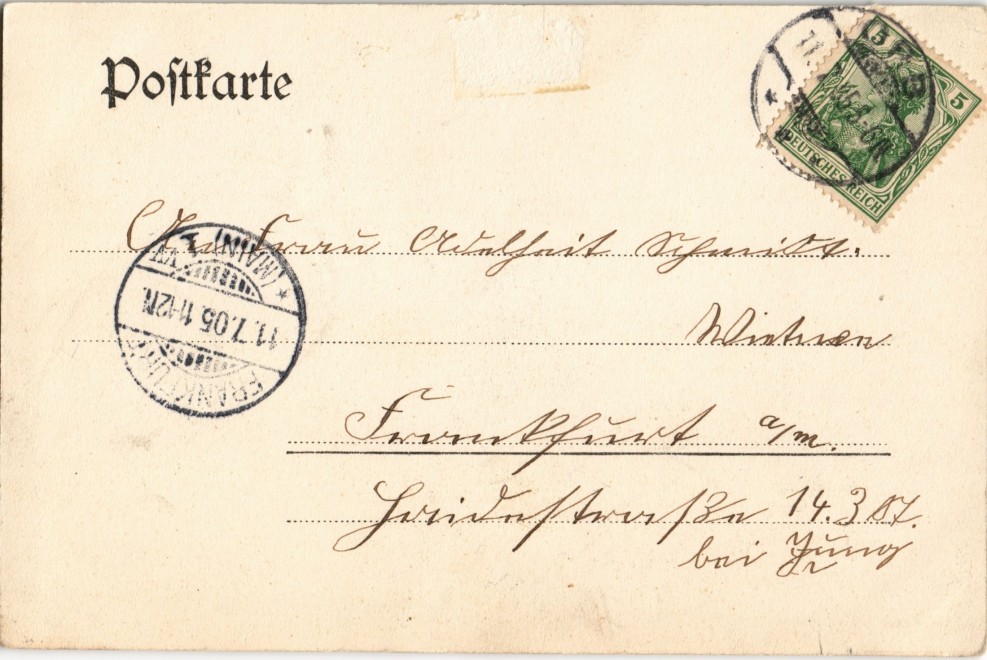 Postkarte
5 5
DEUTSCHES REICH
An Frau Adelheit Schmidt.
Witwe
Frankfurt a/m.
Heidestraße 14. 3 St.
bei Jung
FRANKFURT
11.7.05. 11-12N.
(MAIN) 1